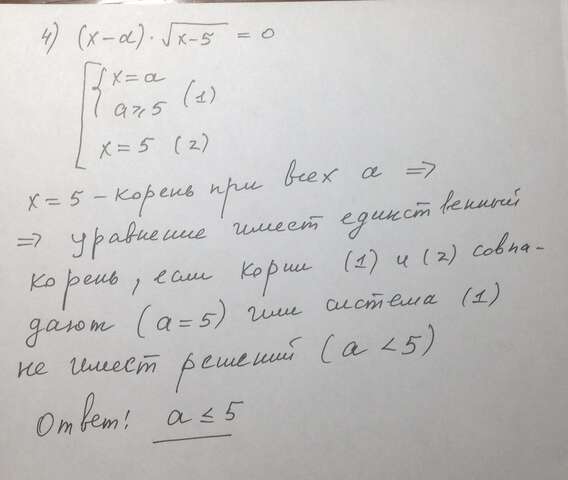 4) (x-a)·√x-5 = 0
x=a
a≥5 (1)
x=5 (2)
x=5 - корень при всех a ⇒
⇒ уравнение имеет единственный
корень, если корни (1) и (2) совпа-
дают (a=5) или система (1)
не имеет решений (a<5)
Ответ: a≤5